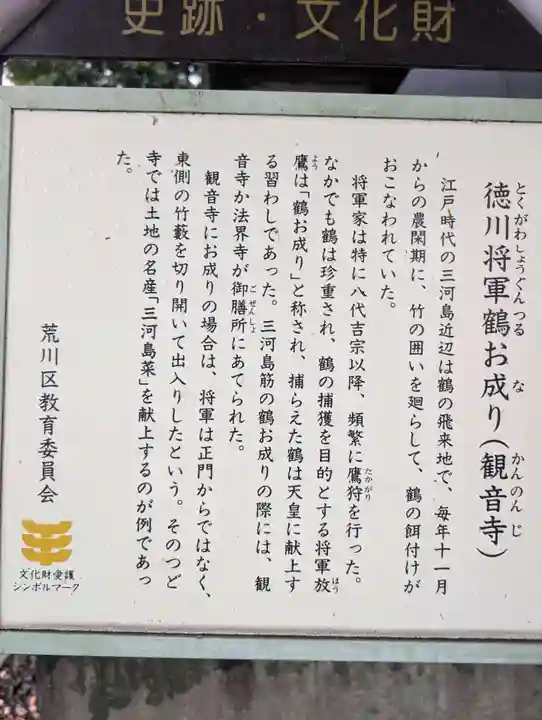 史跡・文化財
徳川将軍鶴お成り(観音寺)
とくがわしょうぐんつる な かんのんじ
江戸時代の三河島近辺は鶴の飛来地で、毎年十一月
からの農閑期に、竹の囲いを廻らして、鶴の餌付けが
おこなわれていた。
将軍家は特に八代吉宗以降、頻繁に鷹狩を行った。
たかがり
なかでも鶴は珍重され、鶴の捕獲を目的とする将軍放
ほう
鷹は「鶴お成り」と称され、捕らえた鶴は天皇に献上す
よう
る習わしであった。三河島筋の鶴お成りの際には、観
音寺か法界寺が御膳所にあてられた。
ごぜんしょ
観音寺にお成りの場合は、将軍は正門からではなく、
東側の竹藪を切り開いて出入りしたという。そのつど
寺では土地の名産「三河島菜」を献上するのが例であっ
た。
荒川区教育委員会
文化財愛護
シンボルマーク